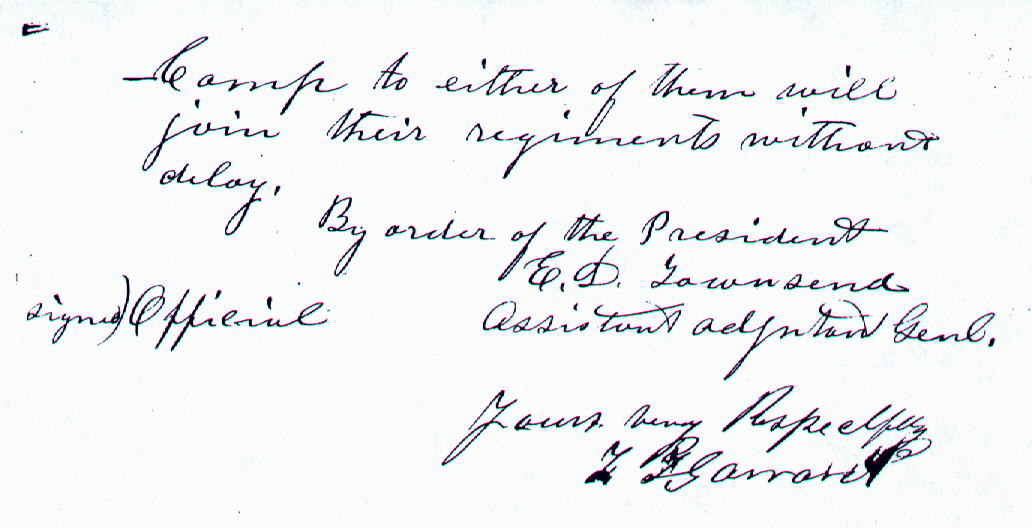 Camp to either of them will
join their regiments without
delay.
By order of the President
E. D. Townsend
signed) Official Assistant adjutant Genl.
Yours very Respectfully
T T Garrard